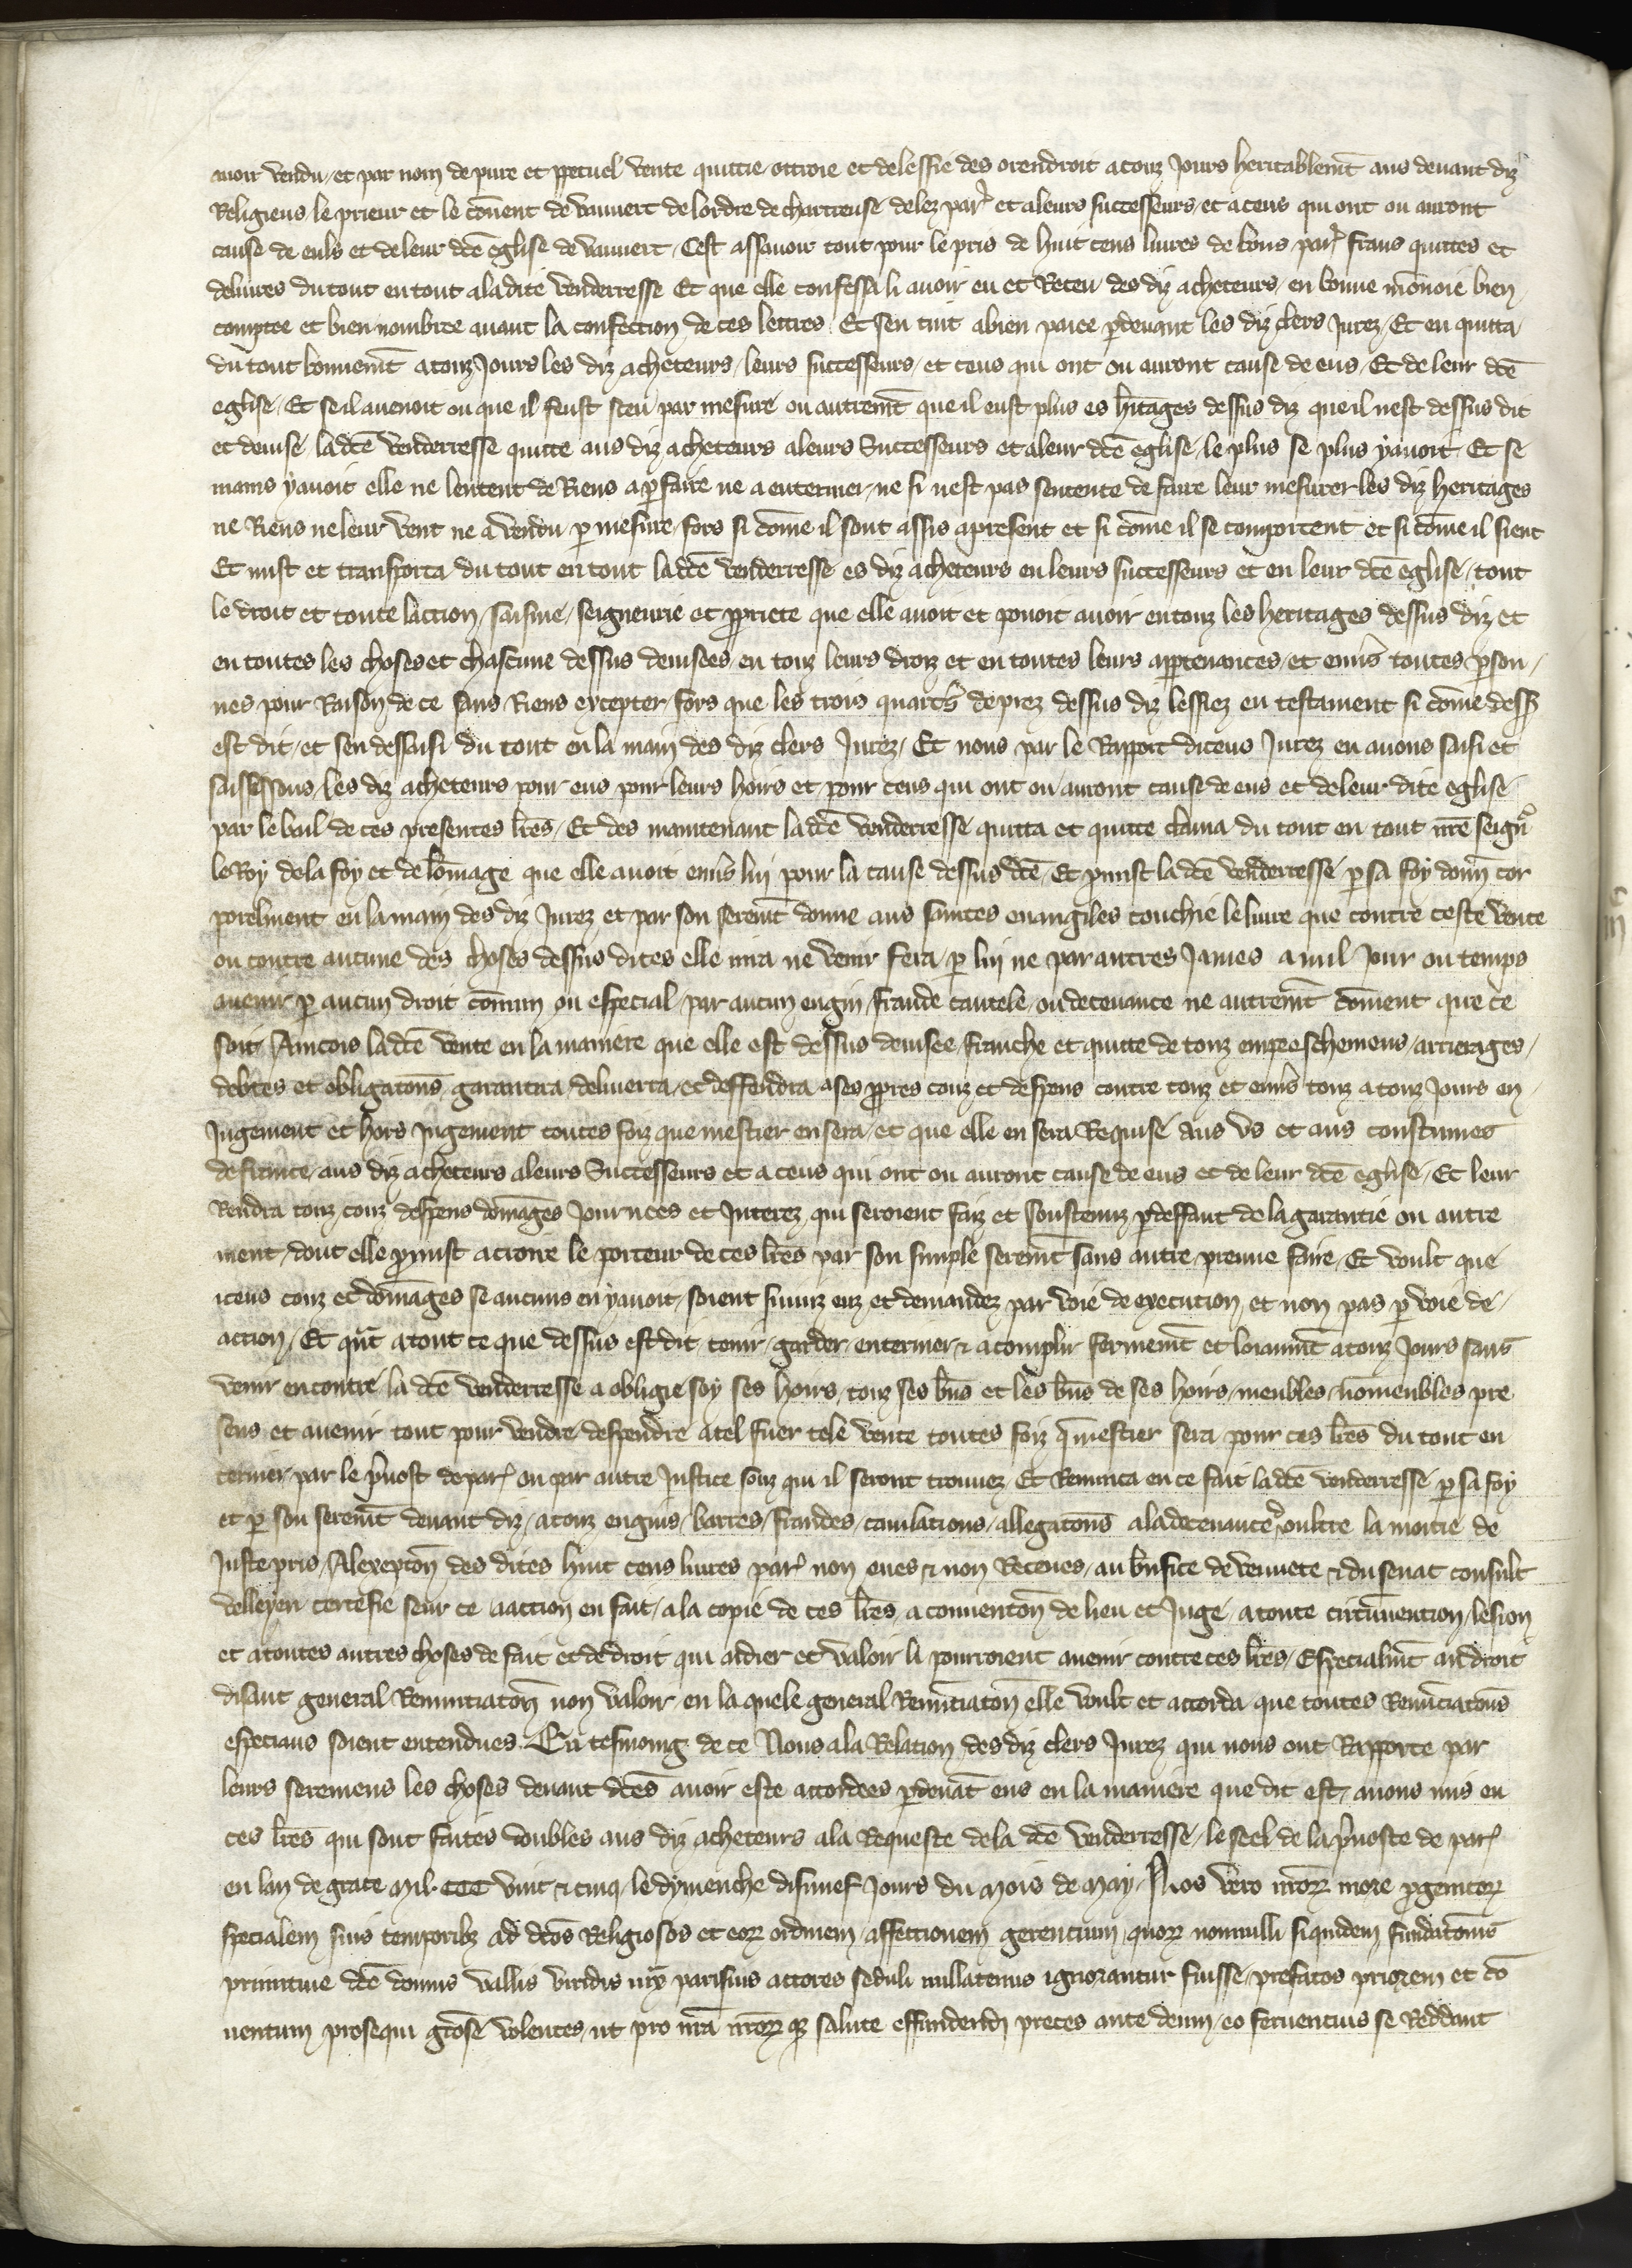 auoir vendu, et par nom de pure et ppetuel vente quittie ottroie et delessie des orendroit a touz Jours heritablemt aus deuant diz
Religieus le prieur et le couent de vauuert de lordre de chartreuse delez par̃ et aleurs successeurs, et a ceus qui ont ou auront
cause de euls et de leur dce eglise de vauuert, Cest assauoir tout pour le pris de huit cens liures de bons par̃ frans quittes et
deliures du tout en tout a ladite venderresse Et que elle confessa li auoir eu et Receu des diz acheteurs, en bonne monnoie bien
comptee et bien nombree auant la confection de ces lettres. Et sen tint a bien paiee pdeuant les diz clers Jurez, Et en quitta
du tout bonnemt a touz Jours les diz acheteurs, leurs successeurs, et ceus qui ont ou auront cause de eus, Et de leur dce
eglise, Et se il auenoit ou que il feust sceu par mesure ou autremt que il eust plus es hitages dessus diz que il nest dessus dit
et deuise, ladce venderresse quitte aus diz acheteurs aleurs Successeurs et aleur dce eglise, le plus se plus y auoit, Et se
mains y auoit elle ne lentent de Riens a pfaire ne a enteriner, ne si nest pas sentente de faire leur mesurer les diz heritages
ne Riens ne leur vent ne a vendu p mesure, fors si come il sont assis apresent et si come il se comportent et si come il sient
Et mist et transporta du tout en tout ladce venderresse es diz acheteurs en leurs successeurs et en leur dce eglise, tout
le droit et toute laction, saisine, seigneurie et ppriete que elle auoit et pouoit auoir en touz les heritages dessus diz et
en toutes les choses et chascune dessus deuisees, en touz leurs droiz et en toutes leurs apptenances, et enuers toutes pson,
nes pour Raison de ce sans Riens excepter, fors que les trois quartrs de prez dessus diz lessiez en testament si come dess9
est dit, et sen dessaisi du tout en la main des diz clers Jurez, Et nous par le Rapport diceus Jurez en auons saisi et
saisissons, les diz acheteurs pour eus pour leurs hoirs et pour ceus qui ont ou auront cause de eus et de leur dite eglise
par le bail de ces presentes lres, Et des maintenant ladce venderresse quitta et quitte clama du tout en tout nre seignr
le Roy de la foy et de lomage que elle auoit enuers luy pour la cause dessus dce, Et pmist la dce venderresse p sa foy donn cor
porelment en la main des diz Jurez et par son seremt donne aus saintes euangiles touchie le liure que contre ceste vente
ou contre aucune des choses dessus dites elle nira ne venir fera, p luy ne par autres James a nul Jour ou temps
auenir p aucun droit comun ou especial, par aucun engin, fraude cautele, ou deceuance ne autremt coment que ce
soit, Aincois ladce vente en la maniere que elle est dessus deuisee, franche et quitte de touz empeeschemens, arrierages,
debtes et obligatons, garantira, deliuerra, et deffendra, a ses ppres couz et despens contre touz et enuers touz a touz Jours en
Jugement et hors Jugement toutes foiz que mestier en sera, et que elle en sera Requise aus vs et aus coustumes
de france, aus diz acheteurs aleurs Successeurs et a ceus qui ont ou auront cause de eus et de leur dce eglise, Et leur
Rendra touz, couz despens domages Journees et Interez, qui seroient faiz et soustenuz p deffaut de la garantie ou autre
ment, dont elle pmist a croire le porteur de ces lres par son simple seremt sans autre preuue faire, Et voult que
iceus couz et domages se aucuns en y auoit, soient suiuiz euz, et demandez par voie de execution, et non pas p voie de
action, Et qut a tout ce que dessus est dit, tenir, garder, enteriner & acomplir fermemt et loiaumt a touz Jours sans
venir encontre, la dce venderresse a obligie soy ses hoirs, touz ses bns et les bns de ses hoirs, meubles, nomeubles pre
sens et auenir tout pour vendre, despendre a tel fuer tele vente toutes foiz q mestier sera, pour ces lres du tout en
teriner, par le puost de par̃ ou par autre Justice souz qui il seront trouuez, Et Renunca en ce fait ladce venderresse p sa foy
et p son seremt deuant diz, a touz engins, barres, fraudes, cauilations, allegatons a la deceuance oultre la moitie de
Juste pris, Alexepton des dites huit cens liures par̃ non eues & non Receues, au benfice de veuuete & du senat consult
velleyen certefie seur ce a action en fait, a la copie de ces lres, a conuenton de lieu et Juge, a toute circunuention, lesion
et a toutes autres choses de fait et de droit qui aidier et valoir li pourroient auenir contre ces lres, Especialmt au droit
disant general Renunciaton non valoir, en la quele general Renunciaton elle voult et accorda que toutes Renunciatons
especiaus soient entendues. En tesmoing de ce Nous a la Relation des diz clers Jurez qui nous ont Rapporte par
leurs seremens les choses deuant dces auoir este accordees pdeuat eus en la maniere que dit est, auons mis en
ces lres qui sont faites doubles aus diz acheteurs a la Requeste de la dce venderresse, le seel de la puoste de par̃
en lan de grace Mil. CCC vint & cinq, le dymenche disnuef Jours du Mois de May. Nos vero nrorum more progenitorum
specialem suis temporibz ad dcos Religiosos et eorum ordinem, affectionem gerencium, quorum nonnulli siquidem fundatonis
primitiue dce domus vallis viridis iux parisius actores seduli nullatenus ignorantur fuisse, prefatos priorem et co
uentum prosequi grose volentes, ut pro nra nrorumque salute effundendi preces ante deum, eo feruentius se Reddant